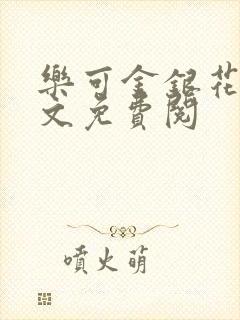 樂可金銀花
文免費閱
噴火萌